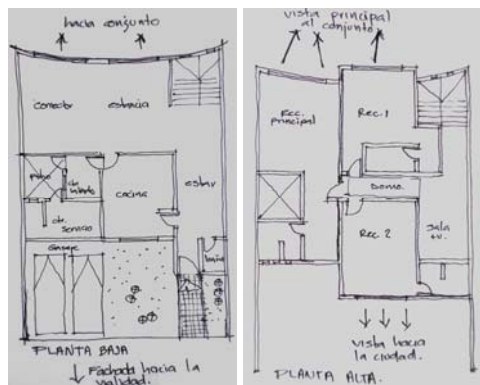 hacia conjunto
comedor
estancia
patio
cto.
cocina
estar
cto. servicio
Garage
baño
PLANTA BAJA
Fachada hacia la
vialidad.
vista principal
al conjunto
Rec.
principal
Rec. 1
Domo
Rec. 2
Sala
tv.
vista hacia
la ciudad.
PLANTA ALTA.